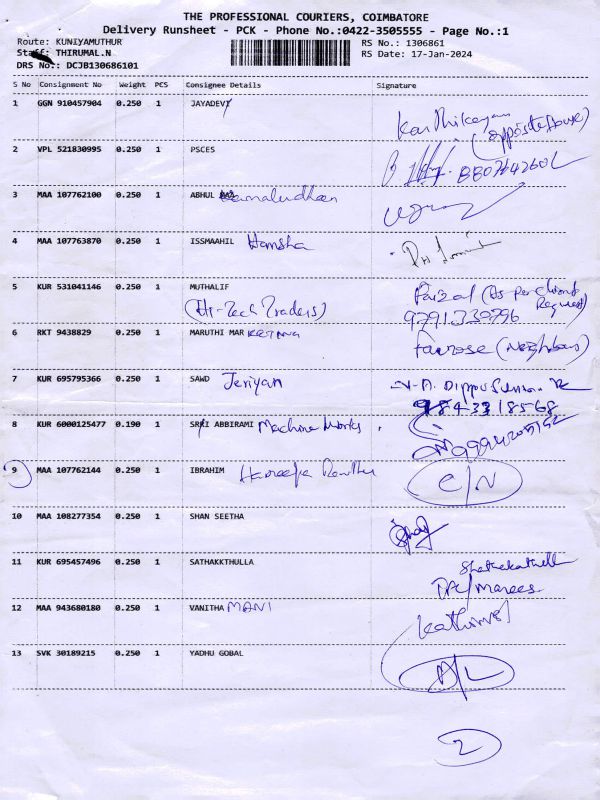 THE PROFESSIONAL COURIERS, COIMBATORE
Delivery Runsheet - PCK - Phone No.:0422-3505555 - Page No.:1
Route: KUNIYAMUTHUR RS No.: 1306861
Staff: THIRUMAL.N RS Date: 17-Jan-2024
DRS No.: DCJB130686101
S No Consignment No Weight PCS Consignee Details Signature
1 GGN 910457904 0.250 1 JAYADEV Karthikeyan
(opposite house)
2 VPL 521830995 0.250 1 PSCES
3 MAA 107762100 0.250 1 ABHUL Kamaludhan
4 MAA 107763870 0.250 1 ISSMAAHIL Hamsha
5 KUR 531041146 0.250 1 MUTHALIF Faizal (As per client Request)
(Hi-Tech Traders) 9791330796
6 RKT 9438829 0.250 1 MARUTHI MARKETING
Fairose (Neighbour)
7 KUR 695795366 0.250 1 SAWD Jeriyan
9843318568
8 KUR 6000125477 0.190 1 SRI ABBIRAMI Machine Works
9 MAA 107762144 0.250 1 IBRAHIM Haneefa Rowther C/N
10 MAA 108277354 0.250 1 SHAN SEETHA
11 KUR 695457496 0.250 1 SATHAKKTHULLA
12 MAA 943680180 0.250 1 VANITHA MANI
13 SVK 30189215 0.250 1 YADHU GOBAL D/L
2